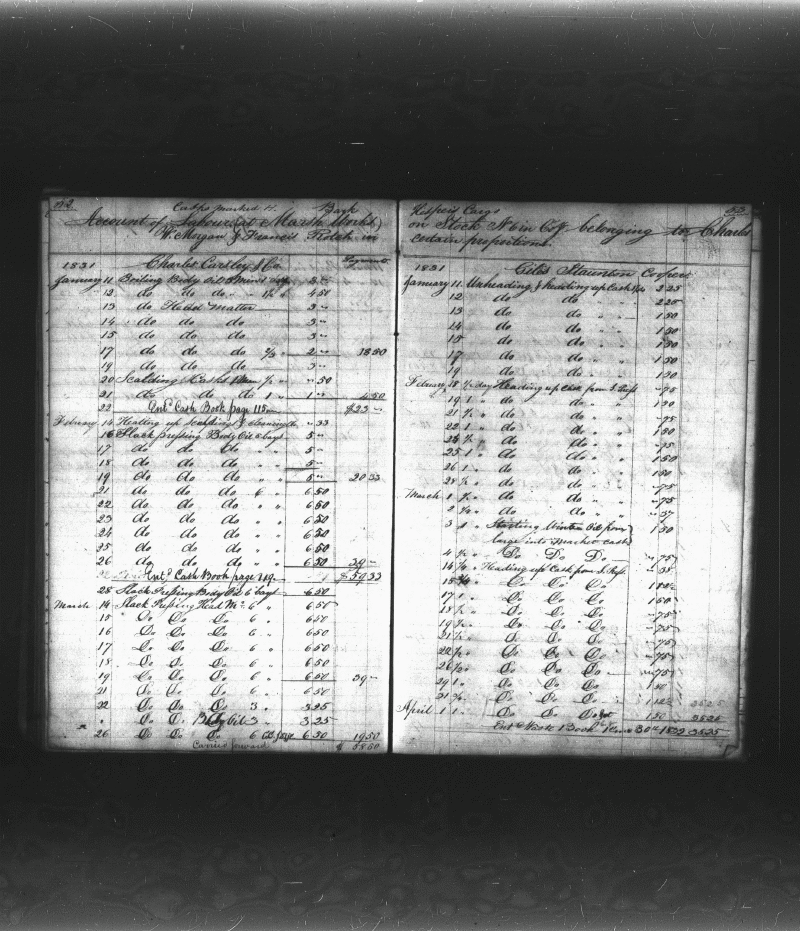 Casks marked H. Bark
Account of Labour (at Marsh Works)
W. Morgan & Francis Rotch in
Payments
1831 Charles Curtley & Co.
January 11 Boiling Body Oil 3 " "
12 do do do 1½ " 4 50
13 do Head Matter 3 "
14 do do do 3 "
15 do do do 3 "
17 do do do 2/3 " 2 " 18 50
19 do do do 3 "
20 Scalding Casks 1 Man ½ " " 50
21 do do do 1 " 1 " 4 50
22 Entd Cash Book page 115 $23 "
February 14 Heating up scalding & cleaning " 33
16 Slack pressing Body Oil 5 bags 5 "
17 do do do " " 5 "
18 do do do " " 5 "
19 do do do " " 5 " 20 33
21 do do do 6 " 6 50
22 do do do " " 6 50
23 do do do " " 6 50
24 do do do " " 6 50
25 do do do " " 6 50
26 do do do " " 6 50 39 "
Entd Cash Book page 119 $59 33
28 Slack Pressing Body Oil 6 bags 6 50
March 14 Slack Pressing Head Mr 6 " 6 50
15 Do Do Do 6 " 6 50
16 Do Do Do 6 " 6 50
17 Do Do Do 6 " 6 50
18 Do Do Do 6 " 6 50
19 Do Do Do 6 " 6 50 39 "
21 Do Do Do 6 " 6 50
22 Do Do Do 3 " 3 25
" Do Do Body Oil 3 " 3 25
26 Do Do Do 6 6 50 19 50
Carried forward $ 58 50
53
Cargo
on Stock No 6 in Co. belonging to Charles
certain propositions.
1831 Giles Staunton Cooper
January 11 Unheading & heading up Cask 2 25
12 do do 2 25
13 do do " " 1 50
14 do do " " 1 50
15 do do " " 1 50
17 do do " " 1 50
19 do do " " 1 50
February 18 ½ day Heading up Cask from " 75
19 1 " do do " " 1 50
21 ½ " do do " " " 75
22 1 " do do " " 1 50
24 ½ " do do " " " 75
25 1 " do do " " 1 50
26 1 " do do " " 1 50
28 ½ " do do " " " 75
March 1 ½ " do do " " " 75
2 ¼ " do do " " " 37
3 1 " Starting Winter Oil from 1 50
large into market casks
4 ½ " Do Do Do " 75
14 ¼ " Heading up Cask from " 38
15 ¾ " Do Do Do 1 12
17 1 " Do Do Do 1 50
18 ½ " Do Do Do " 75
19 ½ " Do Do Do " 75
21 ½ " Do Do Do " 75
22 ½ " Do Do Do " 75
26 ½ " Do Do Do " 75
29 1 " Do Do Do 1 50
31 ¾ " Do Do Do 1 12 35 25
April 1 1 " Do Do Do 1 50 35 25
Entd Waste Book 30th 1832 35 25